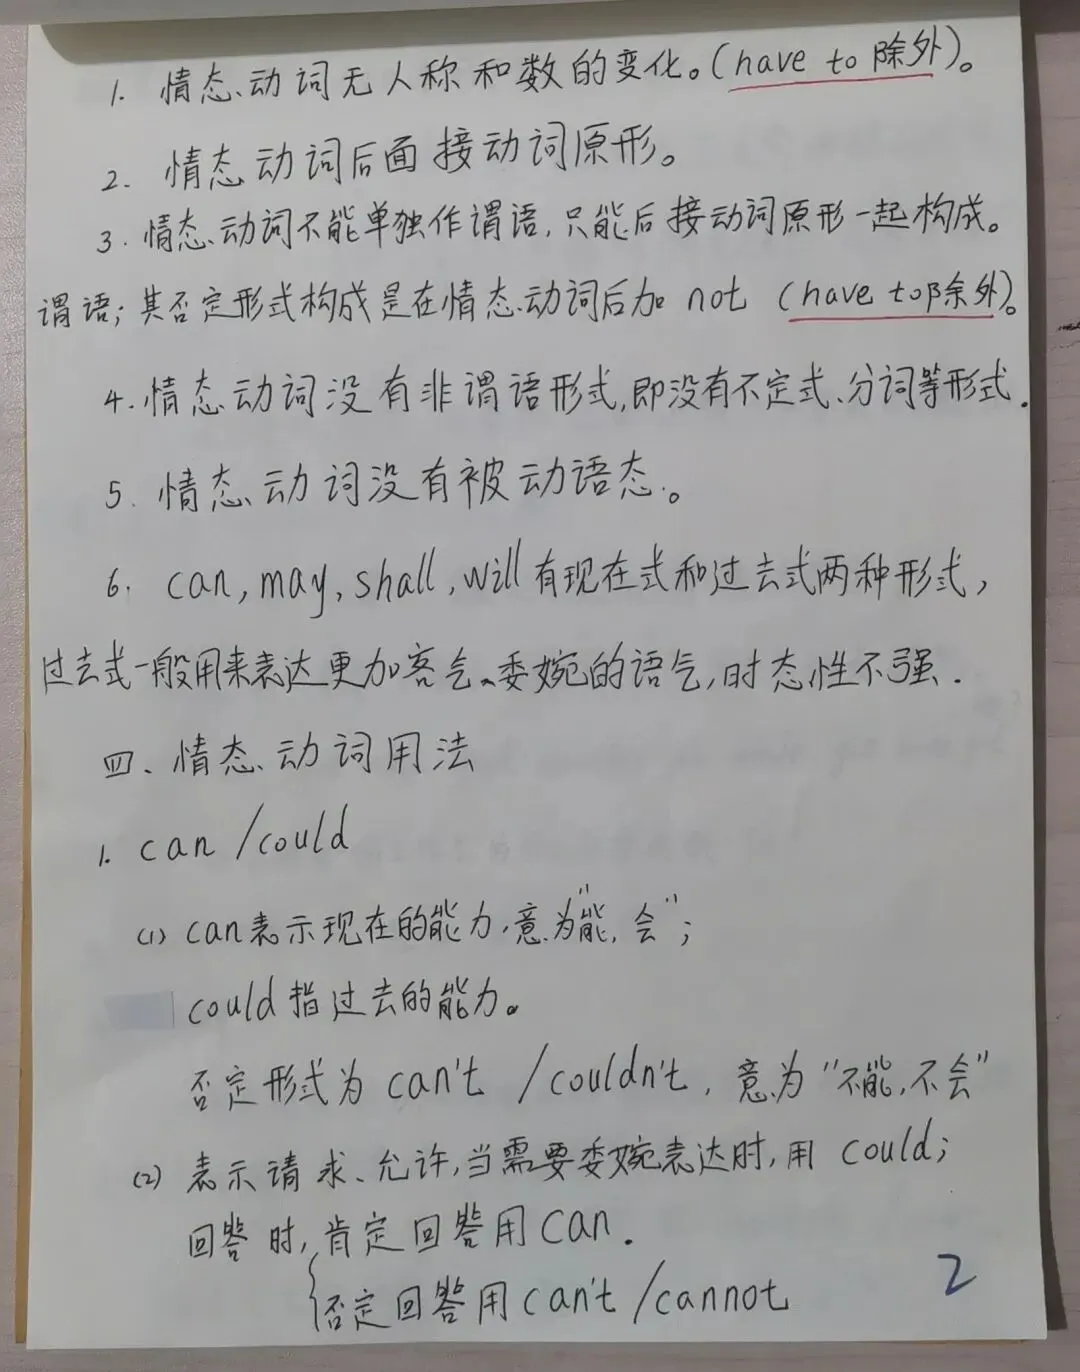 1. 情态动词无人称和数的变化。(have to 除外)。
2. 情态动词后面接动词原形。
3. 情态动词不能单独作谓语,只能后接动词原形一起构成。
谓语;其否定形式构成是在情态动词后加 not (have to除外)。
4. 情态动词没有非谓语形式,即没有不定式、分词等形式.
5. 情态动词没有被动语态。
6. can, may, shall, will 有现在式和过去式两种形式,
过去式一般用来表达更加客气、委婉的语气,时态性不强.
四、情态动词用法
1. can /could
(1) can表示现在的能力,意为"能,会";
could 指过去的能力。
否定形式为 can't /couldn't, 意为"不能,不会"
(2) 表示请求、允许,当需要委婉表达时,用 could;
回答时,肯定回答用 can.
否定回答用 can't /cannot
2